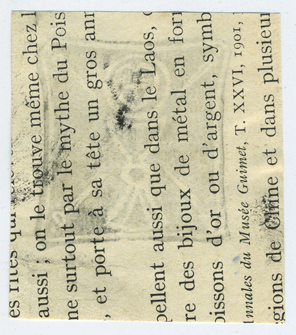 es rites
aussi ; on le trouve même chez l
ne surtout par le mythe du Pois
, et porte à sa tête un gros ann
pellent aussi que dans le Laos,
re des bijoux de métal en for
oissons d'or ou d'argent, symb
nnales du Musée Guimet, T. XXVI, 1901,
gions de Chine et dans plusieu